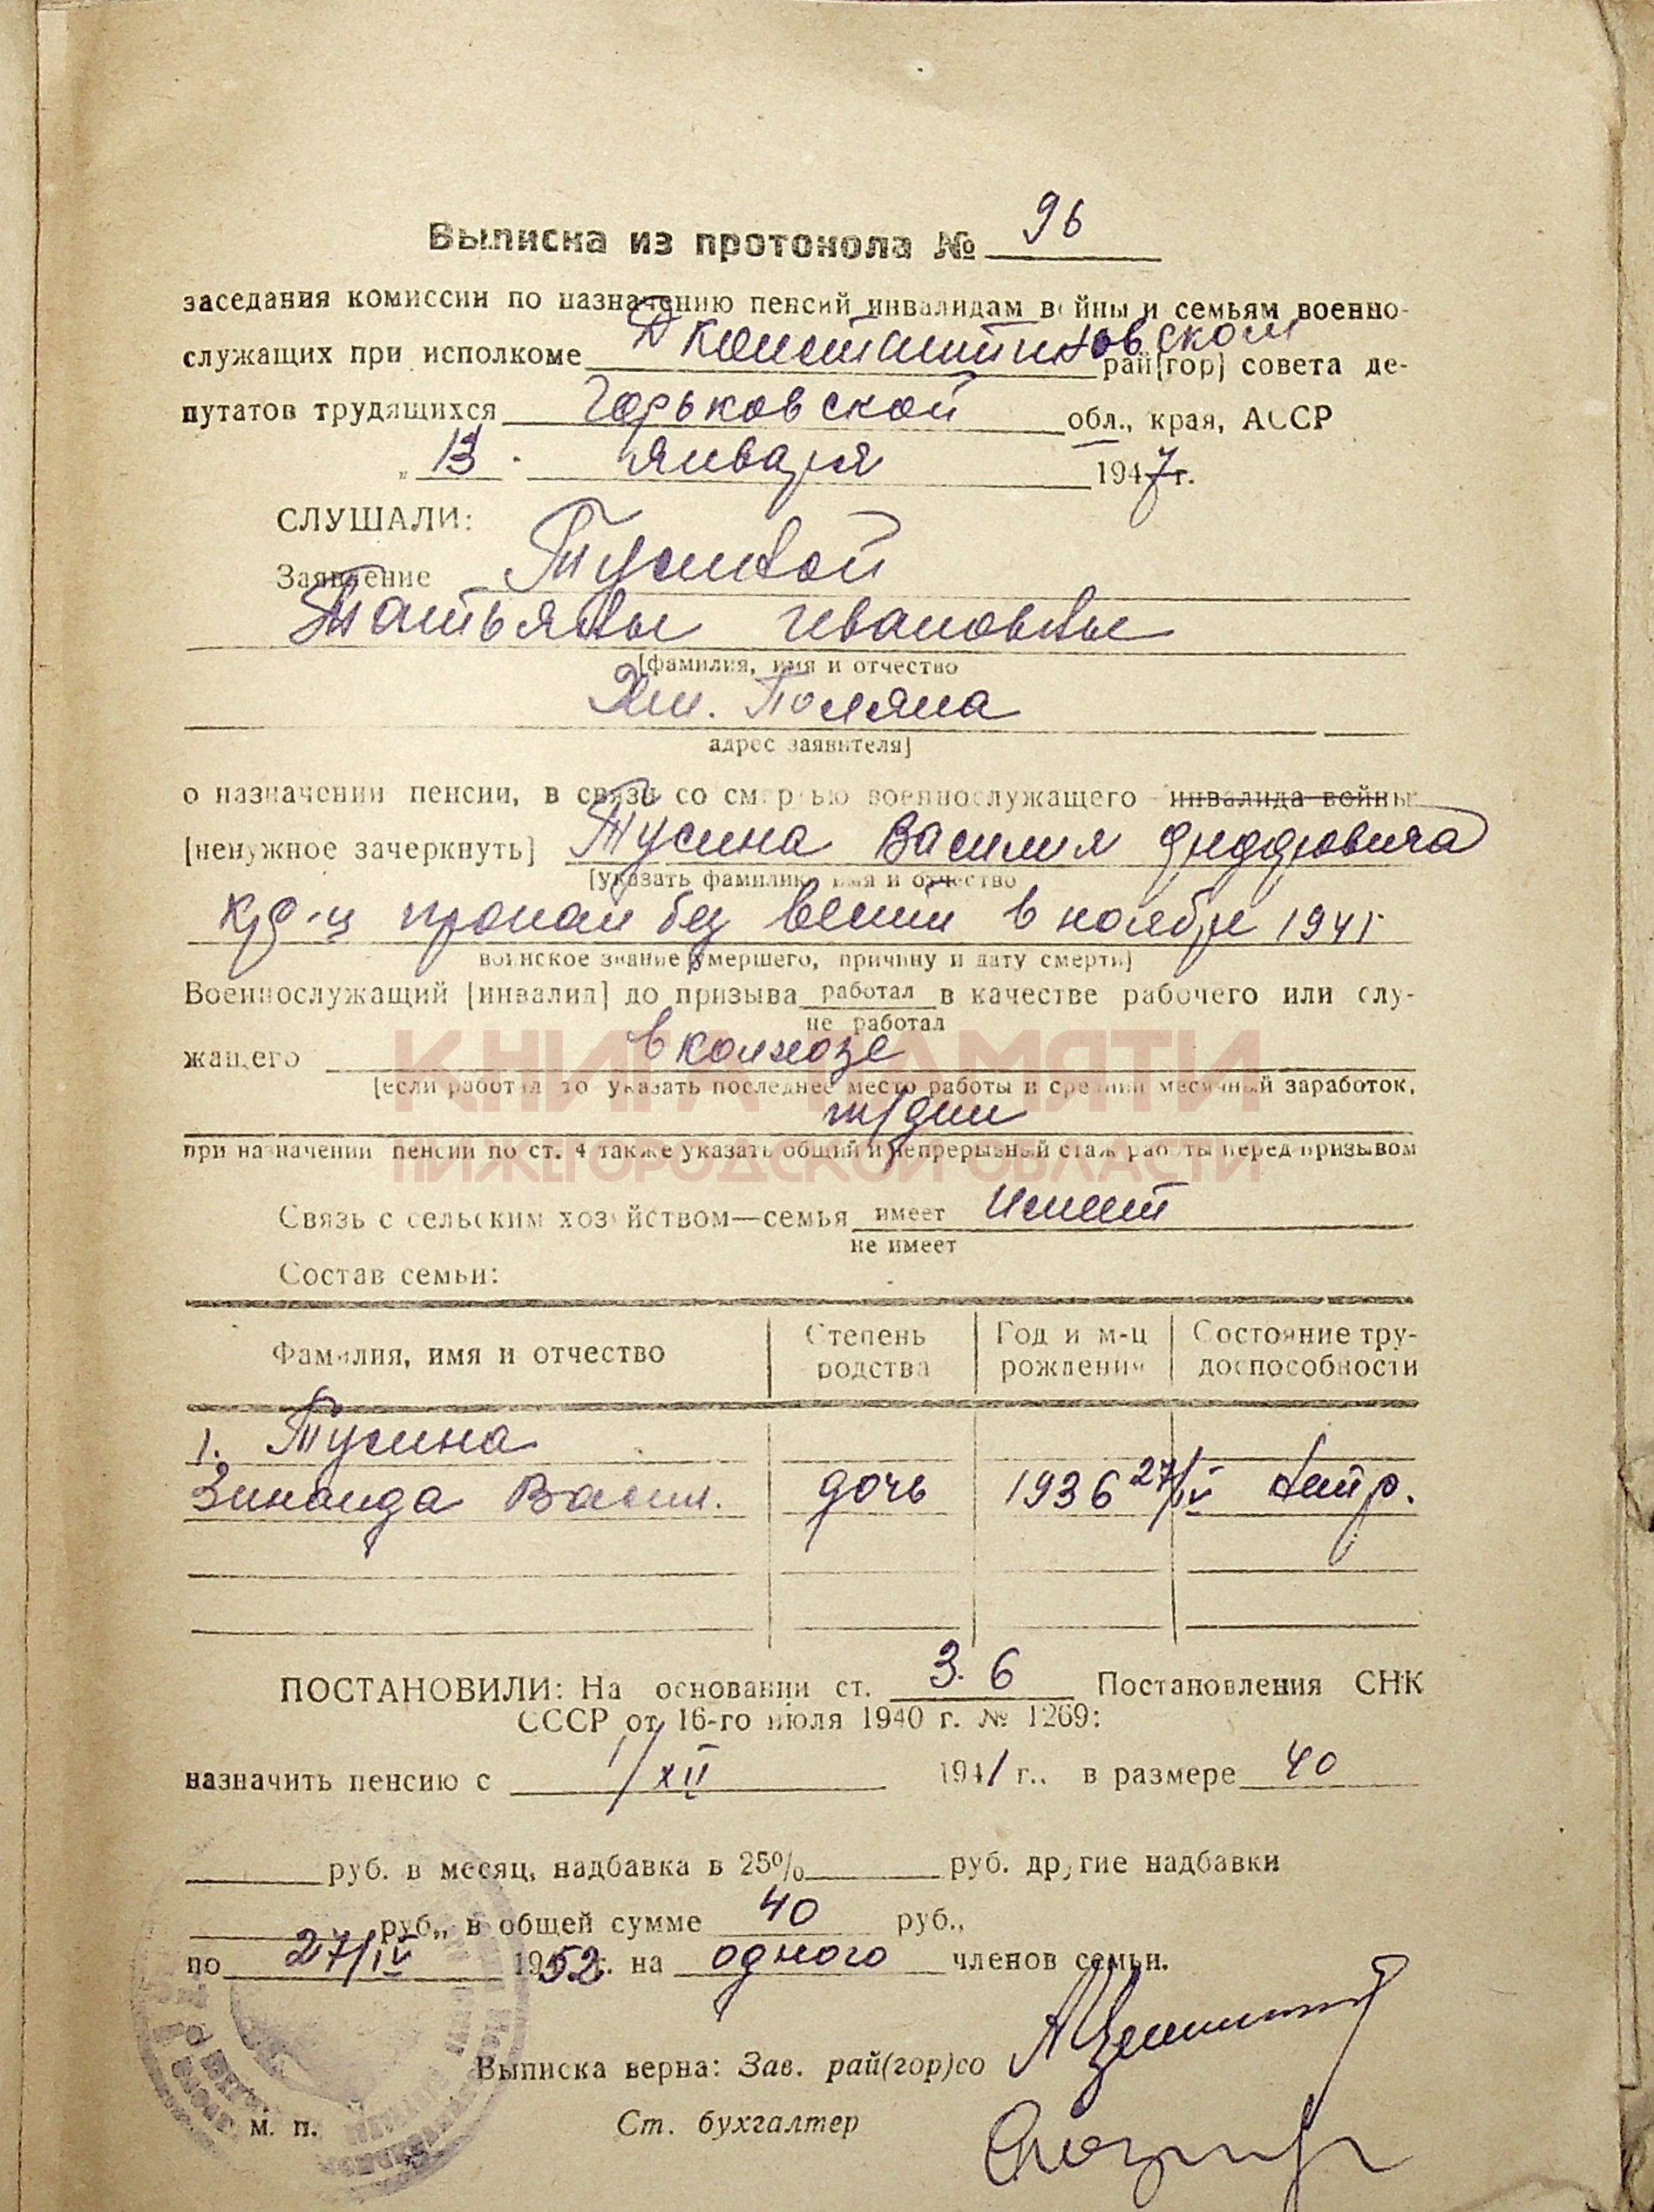 Выписка из протокола № 96
заседания комиссии по назначению пенсий инвалидам войны и семьям военно-
служащих при исполкоме Д Константиновском рай[гор] совета де-
путатов трудящихся Горьковской обл., края, АССР
„ 13 " января 1947 г.
СЛУШАЛИ:
Заявление Тусиной
Татьяны Ивановны
[фамилия, имя и отчество
Поляна
адрес заявителя]
о назначении пенсии, в связи со смертью военнослужащего инвалида войны
[ненужное зачеркнуть] Тусина Василия
[указать фамилию имя и отчество
кр-ц пропал без вести в ноябре 1941
воинское звание умершего, причину и дату смерти]
Военнослужащий [инвалид] до призыва работал в качестве рабочего или слу-
не работал
жащего в колхозе
КНИГА ПАМЯТИ
[если работал то указать последнее место работы и средний месячный заработок,
т/дни
при назначении пенсии по ст. 4 также указать общий и непрерывный стаж работы перед призывом
НИЖЕГОРОДСКОЙ ОБЛАСТИ
Связь с сельским хозяйством—семья имеет имеет
не имеет
Состав семьи:
Фамилия, имя и отчество Степень родства Год и м-ц рождения Состояние тру- доспособности
1. Тусина
Зинаида Васил. дочь 1936 27/IV нетр.
ПОСТАНОВИЛИ: На основании ст. 3. 6 Постановления СНК
СССР от 16-го июля 1940 г. № 1269:
назначить пенсию с 1/XII 1941 г.. в размере 40
руб. в месяц, надбавка в 25% руб. другие надбавки
руб., в общей сумме 40 руб.,
по 27/IV 1952 г. на одного членов семьи.
Выписка верна: Зав. рай(гор)со
м. п. Ст. бухгалтер